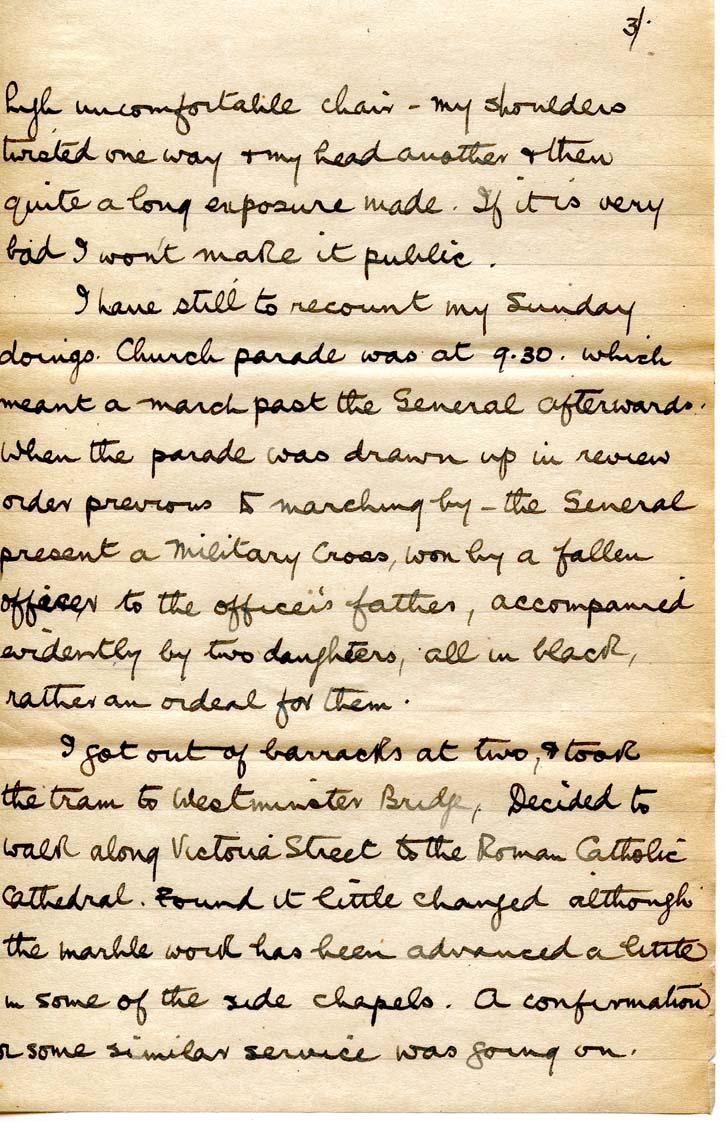 3/.
high uncomfortable chair - my shoulders
twisted one way & my head another & then
quite a long exposure made. If it is very
bad I won't make it public.
I have still to recount my Sunday
doings. Church parade was at 9.30. which
meant a march past the General afterwards.
When the parade was drawn up in review
order previous to marching by - the General
present a Military Cross, won by a fallen
officer to the officer's father, accompanied
evidently by two daughters, all in black,
rather an ordeal for them.
I got out of barracks at two, & took
the tram to Westminster Bridge, Decided to
walk along Victoria Street to the Roman Catholic
Cathedral. Found it little changed although
the marble work has been advanced a little
in some of the side chapels. A confirmation
or some similar service was going on.